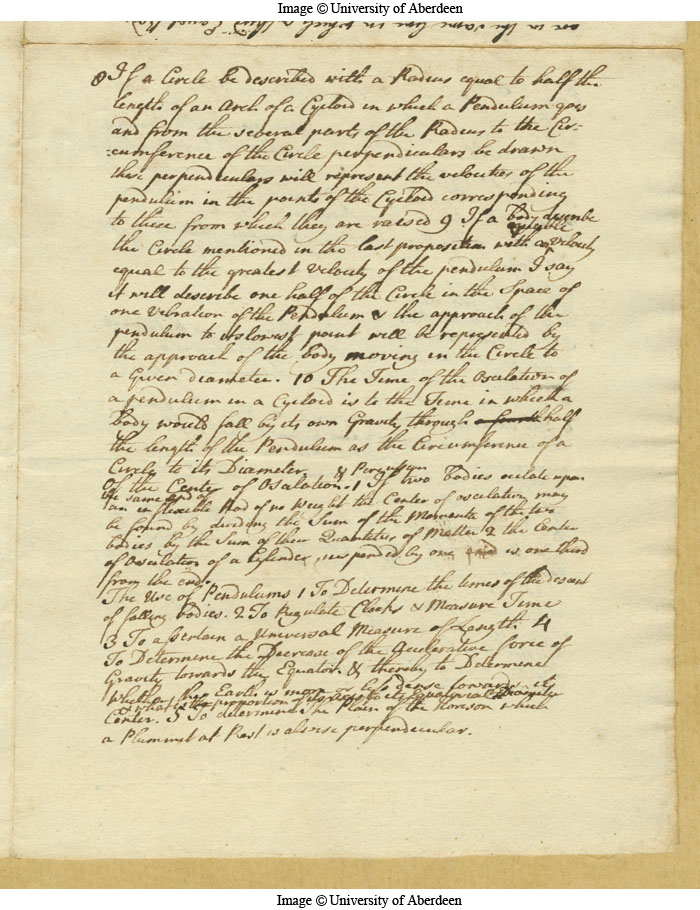 Image © University of Aberdeen
8 If a Circle be described with a Radius equal to half the
length of an Arch of a Cycloid in which a Pendulum goes
and from the several parts of the Radius to the Cir-
cumference of the Circle perpendiculars be drawn
these perpendiculars will represent the velocities of the
pendulum in the points of the Cycloid corresponding
to these from which they are raised 9 If a body describe
the Circle mentioned in the last proposition with a Velocity
equal to the greatest Velocity of the pendulum I say
it will describe one half of the Circle in the Space of
one Vibration of the Pendulum & the approach of the
pendulum to its lowest point will be represented by
the approach of the body moving in the Circle to
a Given diameter. 10 The Time of the Osculation of
a pendulum in a Cycloid is to the Time in which a
body would fall by its own Gravity through half
the length of the Pendulum as the Circumference of a
Circle to its Diameter.
Of the Center of Osculation & Percussion 1 If two bodies oculate upon
the same end of
an inflexible Rod of no Weight the Center of osculation may
be found by dividing the Sum of the Momenta of the two
bodies by the Sum of their Quantities of Matter 2 the Center
of Osculation of a Cylinder suspended by one end is one third
from the end.
The Use of Pendulums 1 To Determine the times of the descent
of falling bodies. 2 To Regulate Clocks & Measure Time
3 To assertain a Universal Measure of Length. 4
To Determine the Decrease of the Accelerative force of
Gravity towards the Equator. & thereby to Determine
Whether the Earth is more or less dense towards its
& what is the proportion of its Axis to its Equatorial Diameter
Center. 5 To determine the Plain of the horison which
a Plummet at Rest is always perpendicular.
Image © University of Aberdeen